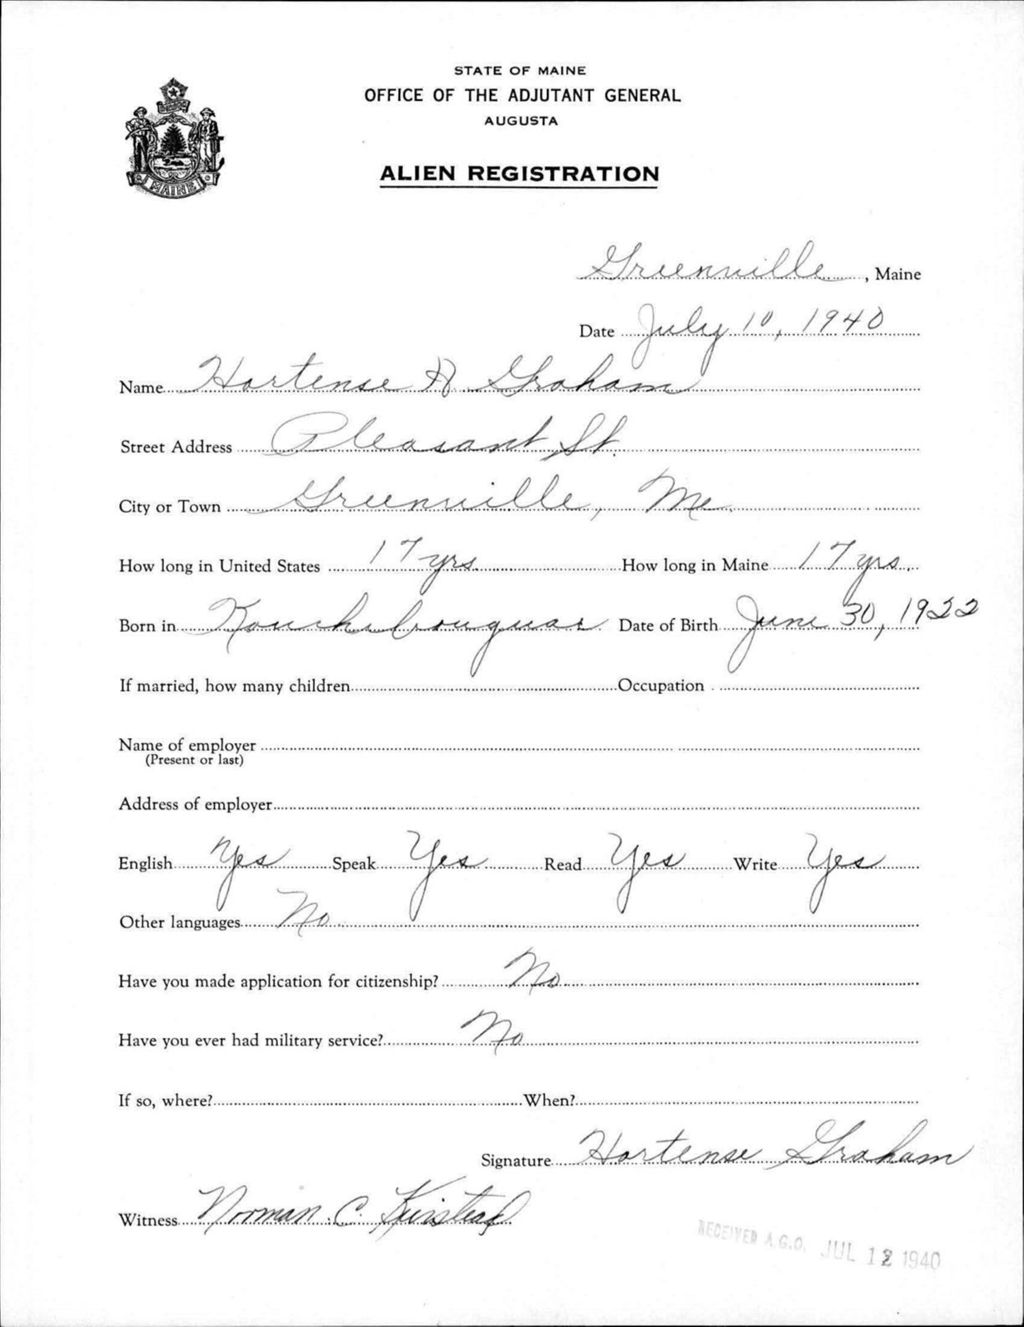 STATE OF MAINE
OFFICE OF THE ADJUTANT GENERAL
AUGUSTA
ALIEN REGISTRATION
MAINE
Greenville, Maine
Date July 10, 1940
Name Hortense A Graham
Street Address Pleasant St.
City or Town Greenville, Me.
How long in United States 17 yrs. How long in Maine 17 yrs.
Born in Kouchibouguac Date of Birth June 30, 1922
If married, how many children Occupation
Name of employer
(Present or last)
Address of employer
English Yes Speak Yes Read Yes Write Yes
Other languages No
Have you made application for citizenship? No
Have you ever had military service? No
If so, where? When?
Signature Hortense Graham
Witness Norman C.
RECEIVED A.G.O. JUL 12 1940